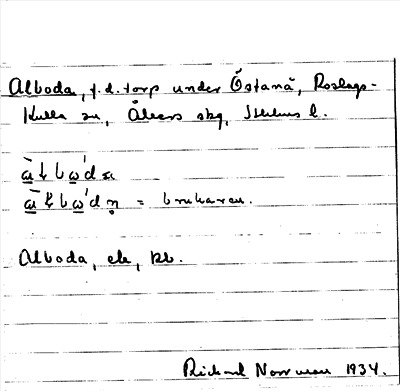 Alboda, f.d. torp under Östanå, Roslags-
Kulla sn, Åkers skg, Sthlms l.
= brukaren.
Alboda, ek, kb.
Rickard Norrman 1934.